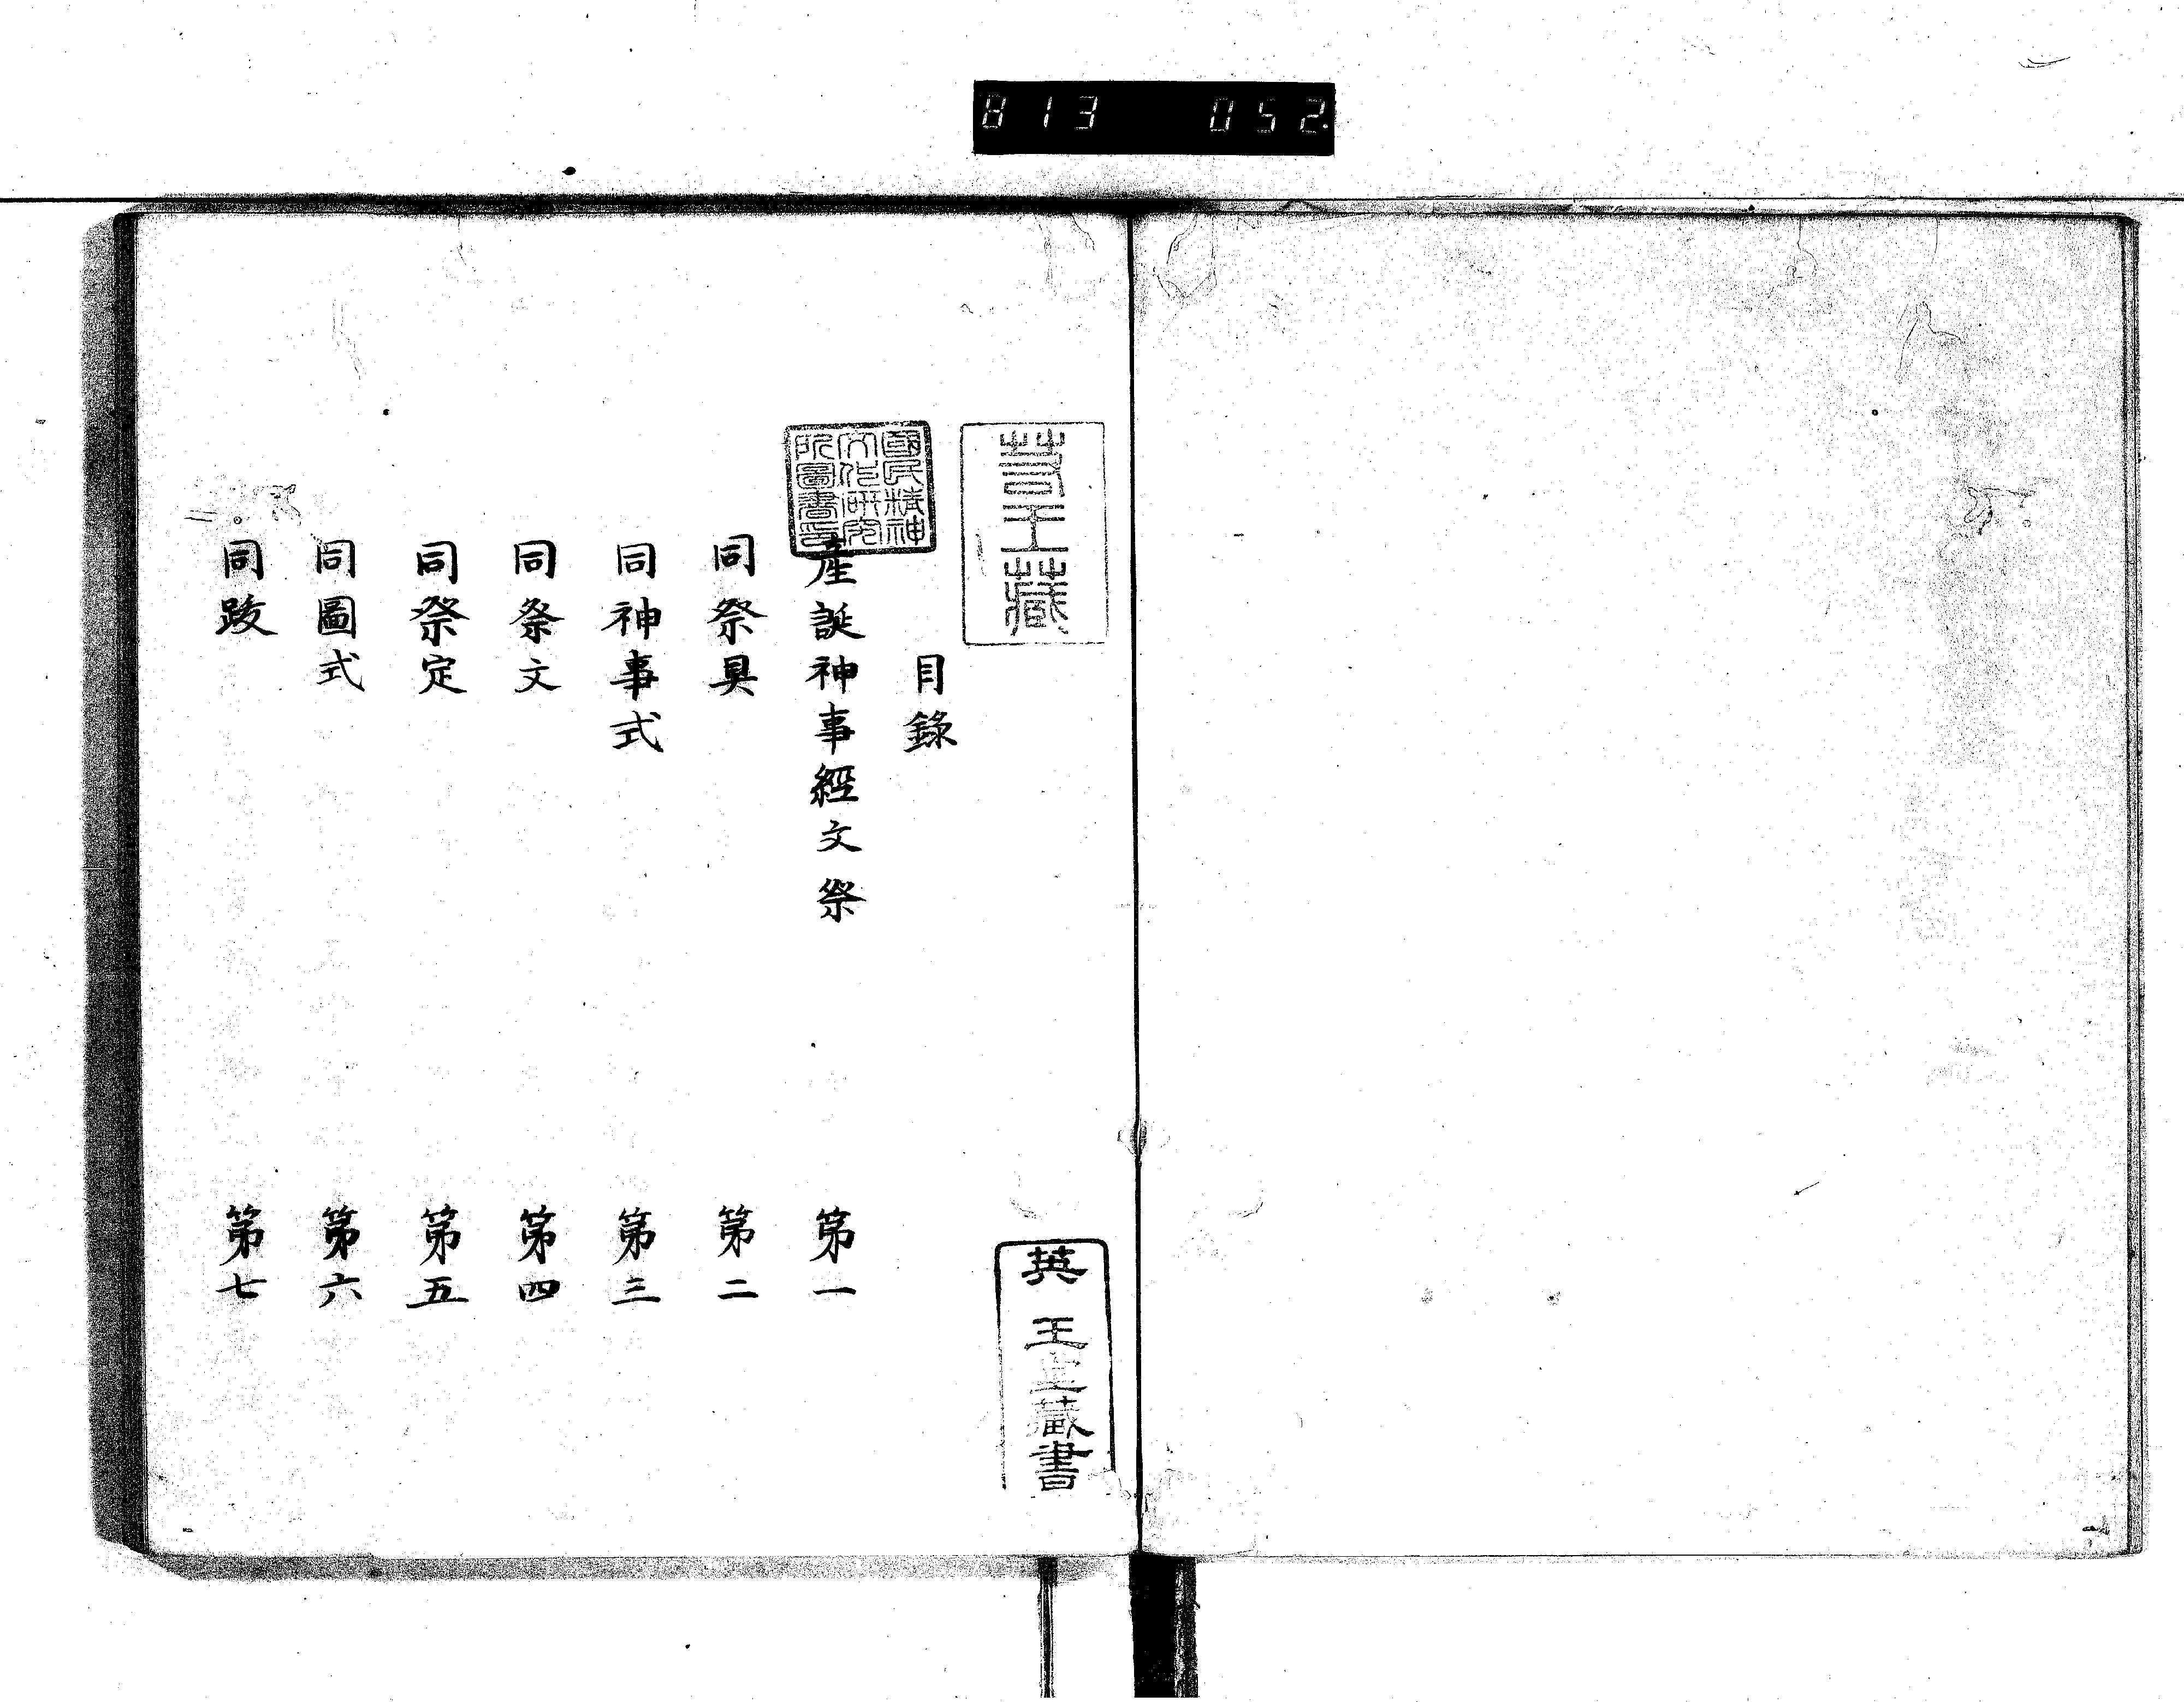 813 052
目錄
産誕神事經文祭 第一
同祭具 第二
同神事式 第三
同祭文 第四
同祭定 第五
同圖式 第六
同跋 第七
國民精神
文化研究
所圖書印
王藏
英王堂藏書